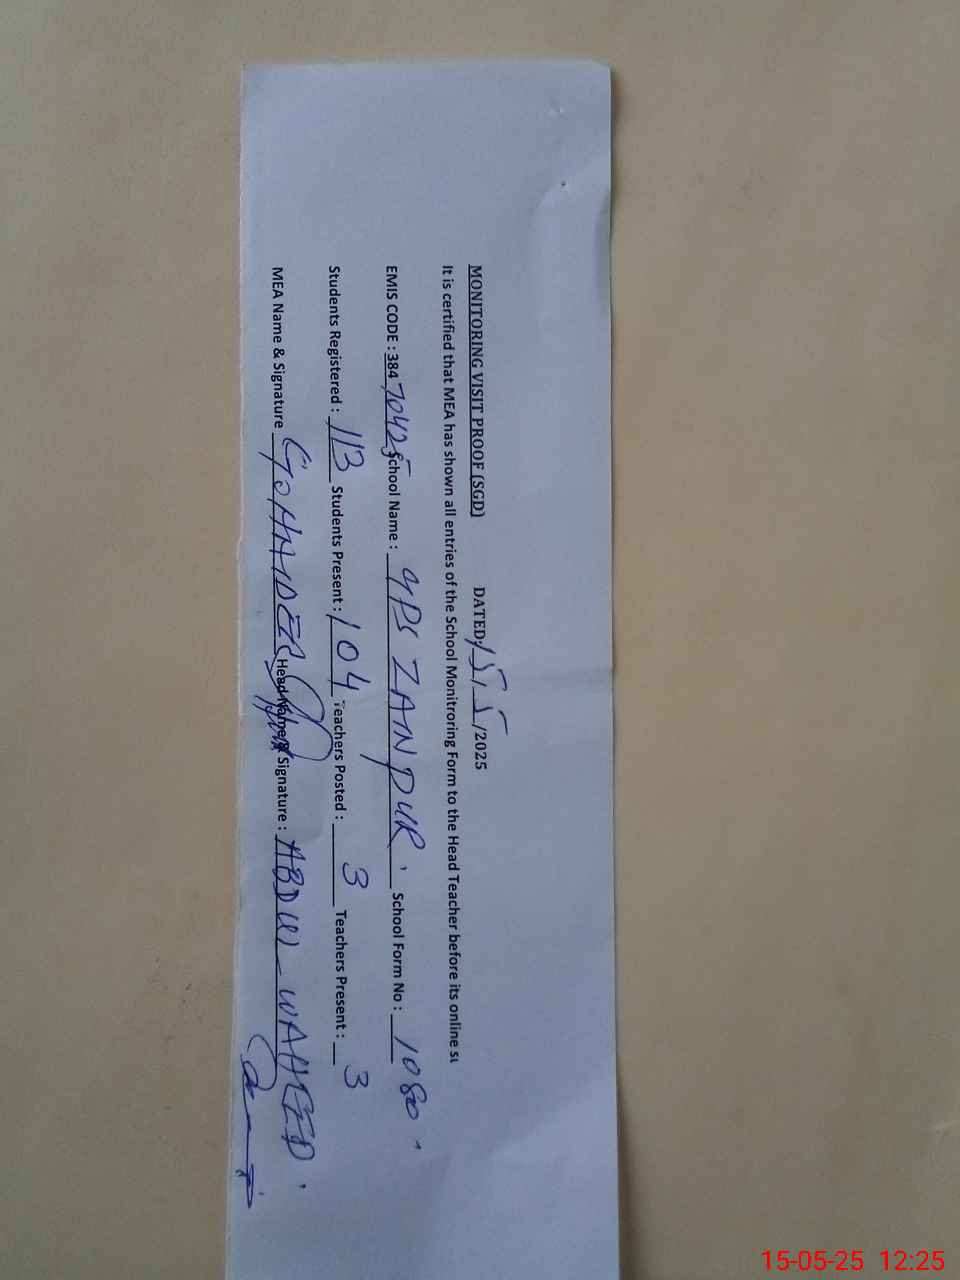 MONITORING VISIT PROOF (SGD) DATED: 15/5/2025
It is certified that MEA has shown all entries of the School Monitroring Form to the Head Teacher before its online su
EMIS CODE : 38470425 School Name : GPS ZANDUR . School Form No : 1080 .
Students Registered : 113 Students Present : 104 Teachers Posted : 3 Teachers Present : 3
MEA Name & Signature Head Name & Signature : ABDUL WAHEED .
15-05-25 12:25